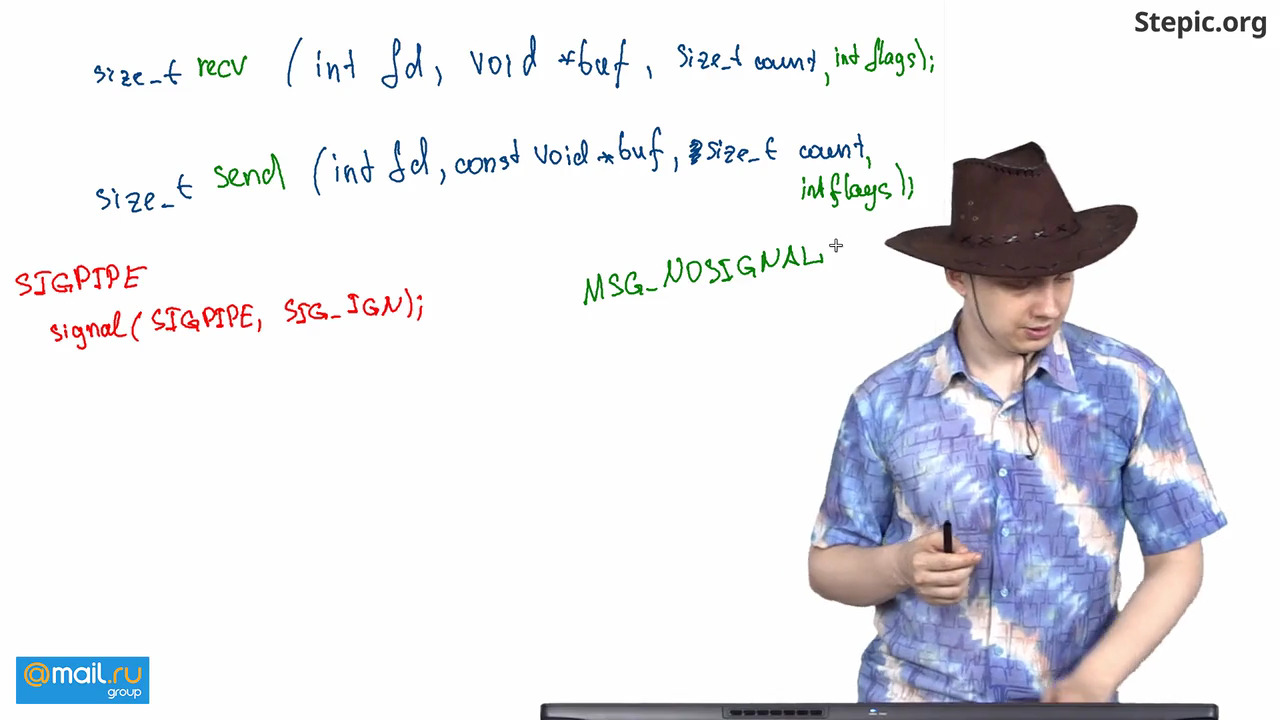 Stepic.org
size_t recv (int fd, void *buf, size_t count, int flags);
size_t send (int fd, const void *buf, size_t count,
int flags);
SIGPIPE
signal(SIGPIPE, SIG_IGN);
MSG_NOSIGNAL
@mail.ru
group